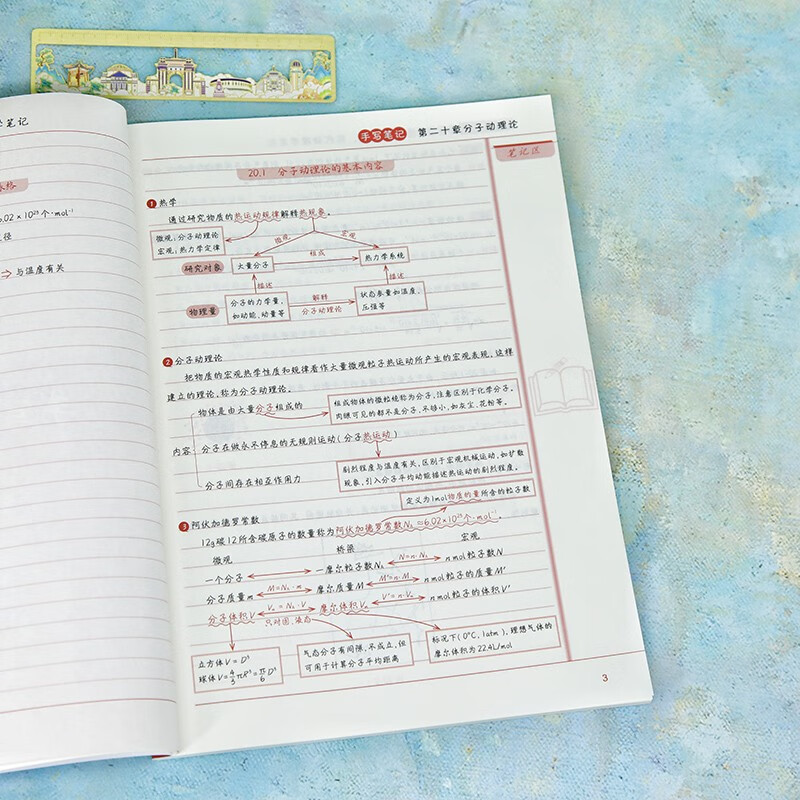 笔记
6.02×10²³个·mol⁻¹
径
⇒ 与温度有关
手写笔记 第二十章分子动理论
笔记区
20.1 分子动理论的基本内容
1 热学
通过研究物质的热运动规律解释热现象。
微观:分子动理论
宏观:热力学定律
微观
宏观
研究对象 大量分子 组成 热力学系统
描述 描述
物理量 分子的力学量,如动能、动量等 解释 分子动理论 状态参量如温度、压强等
2 分子动理论
把物质的宏观热学性质和规律看作大量微观粒子热运动所产生的宏观表现,这样
建立的理论,称为分子动理论。
内容
物体是由大量分子组成的
组成物体的微粒统称为分子,注意区别于化学分子。
肉眼可见的都不是分子,不够小,如灰尘、花粉等。
分子在做永不停息的无规则运动(分子热运动)
剧烈程度与温度有关,区别于宏观机械运动,如扩散
现象,引入分子平均动能描述热运动的剧烈程度。
分子间存在相互作用力
定义为1mol物质的量所含的粒子数
3 阿伏加德罗常数
12g碳12所含碳原子的数量称为阿伏加德罗常数Nₐ≈6.02×10²³个·mol⁻¹。
微观 桥梁 宏观
一个分子 一摩尔粒子数Nₐ N=n·Nₐ n mol粒子数N
分子质量m M=Nₐ·m 摩尔质量M M'=n·M n mol粒子的质量M'
分子体积V Vₐ=Nₐ·V 摩尔体积Vₐ V'=n·Vₐ n mol粒子的体积V'
只对固、液态
立方体V=D³
球体V=4/3πR³=π/6D³
气态分子有间隙,不成立,但
可用于计算分子平均距离
标况下(0℃,1atm),理想气体的
摩尔体积为22.4L/mol
3